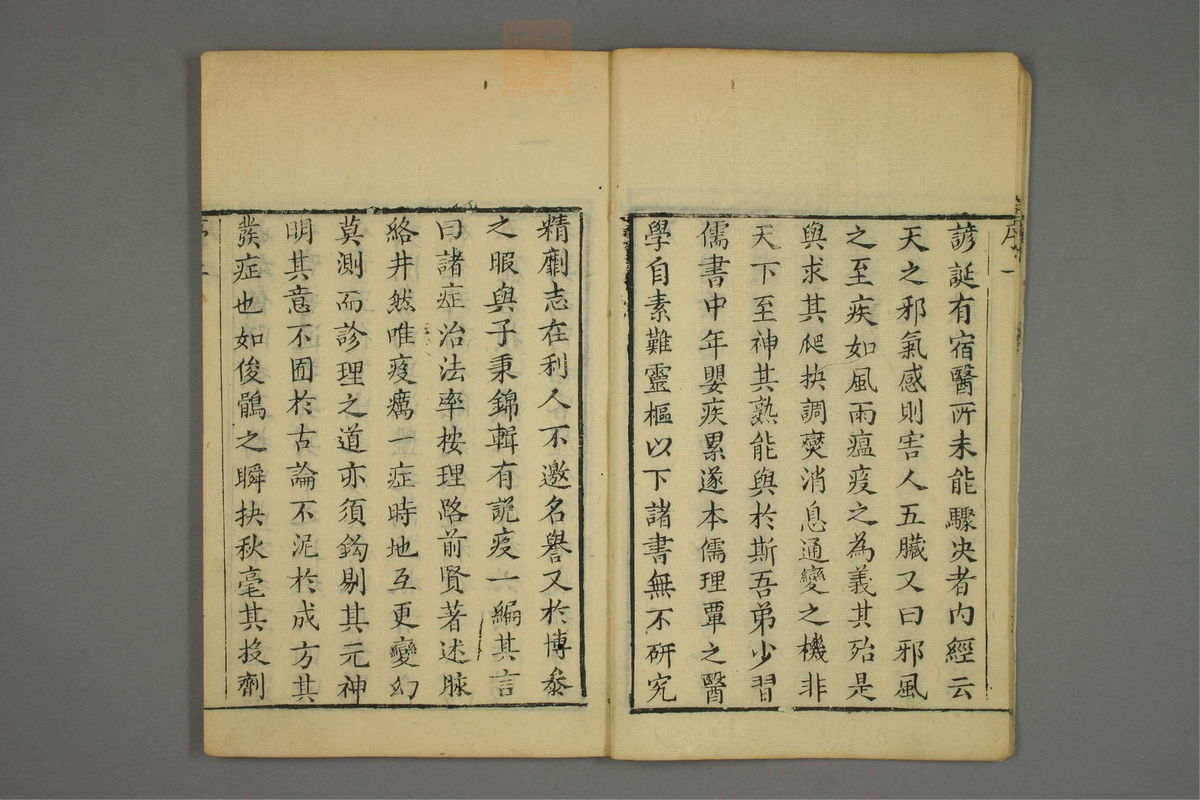 諺誕有宿醫所未能驟决者内經云
天之邪氣感則害人五臟又曰邪風
之至疾如風雨瘟疫之為義其殆是
與求其爬抉調爕消息通變之機非
天下至神其孰能與於斯吾弟少習
儒書中年嬰疾累遂本儒理覃之醫
學自素難靈樞以下諸書無不研究
精劘志在利人不邀名譽又於博叅
之暇與子秉錦輯有説疫一編其言
曰諸症治法率桉理路前賢著述脉
絡井然唯疫癘一症時地互更變幻
莫測而診理之道亦須鈎剔其元神
明其意不囿於古論不泥於成方其
發症也如俊鶻之瞬抉秋毫其投劑